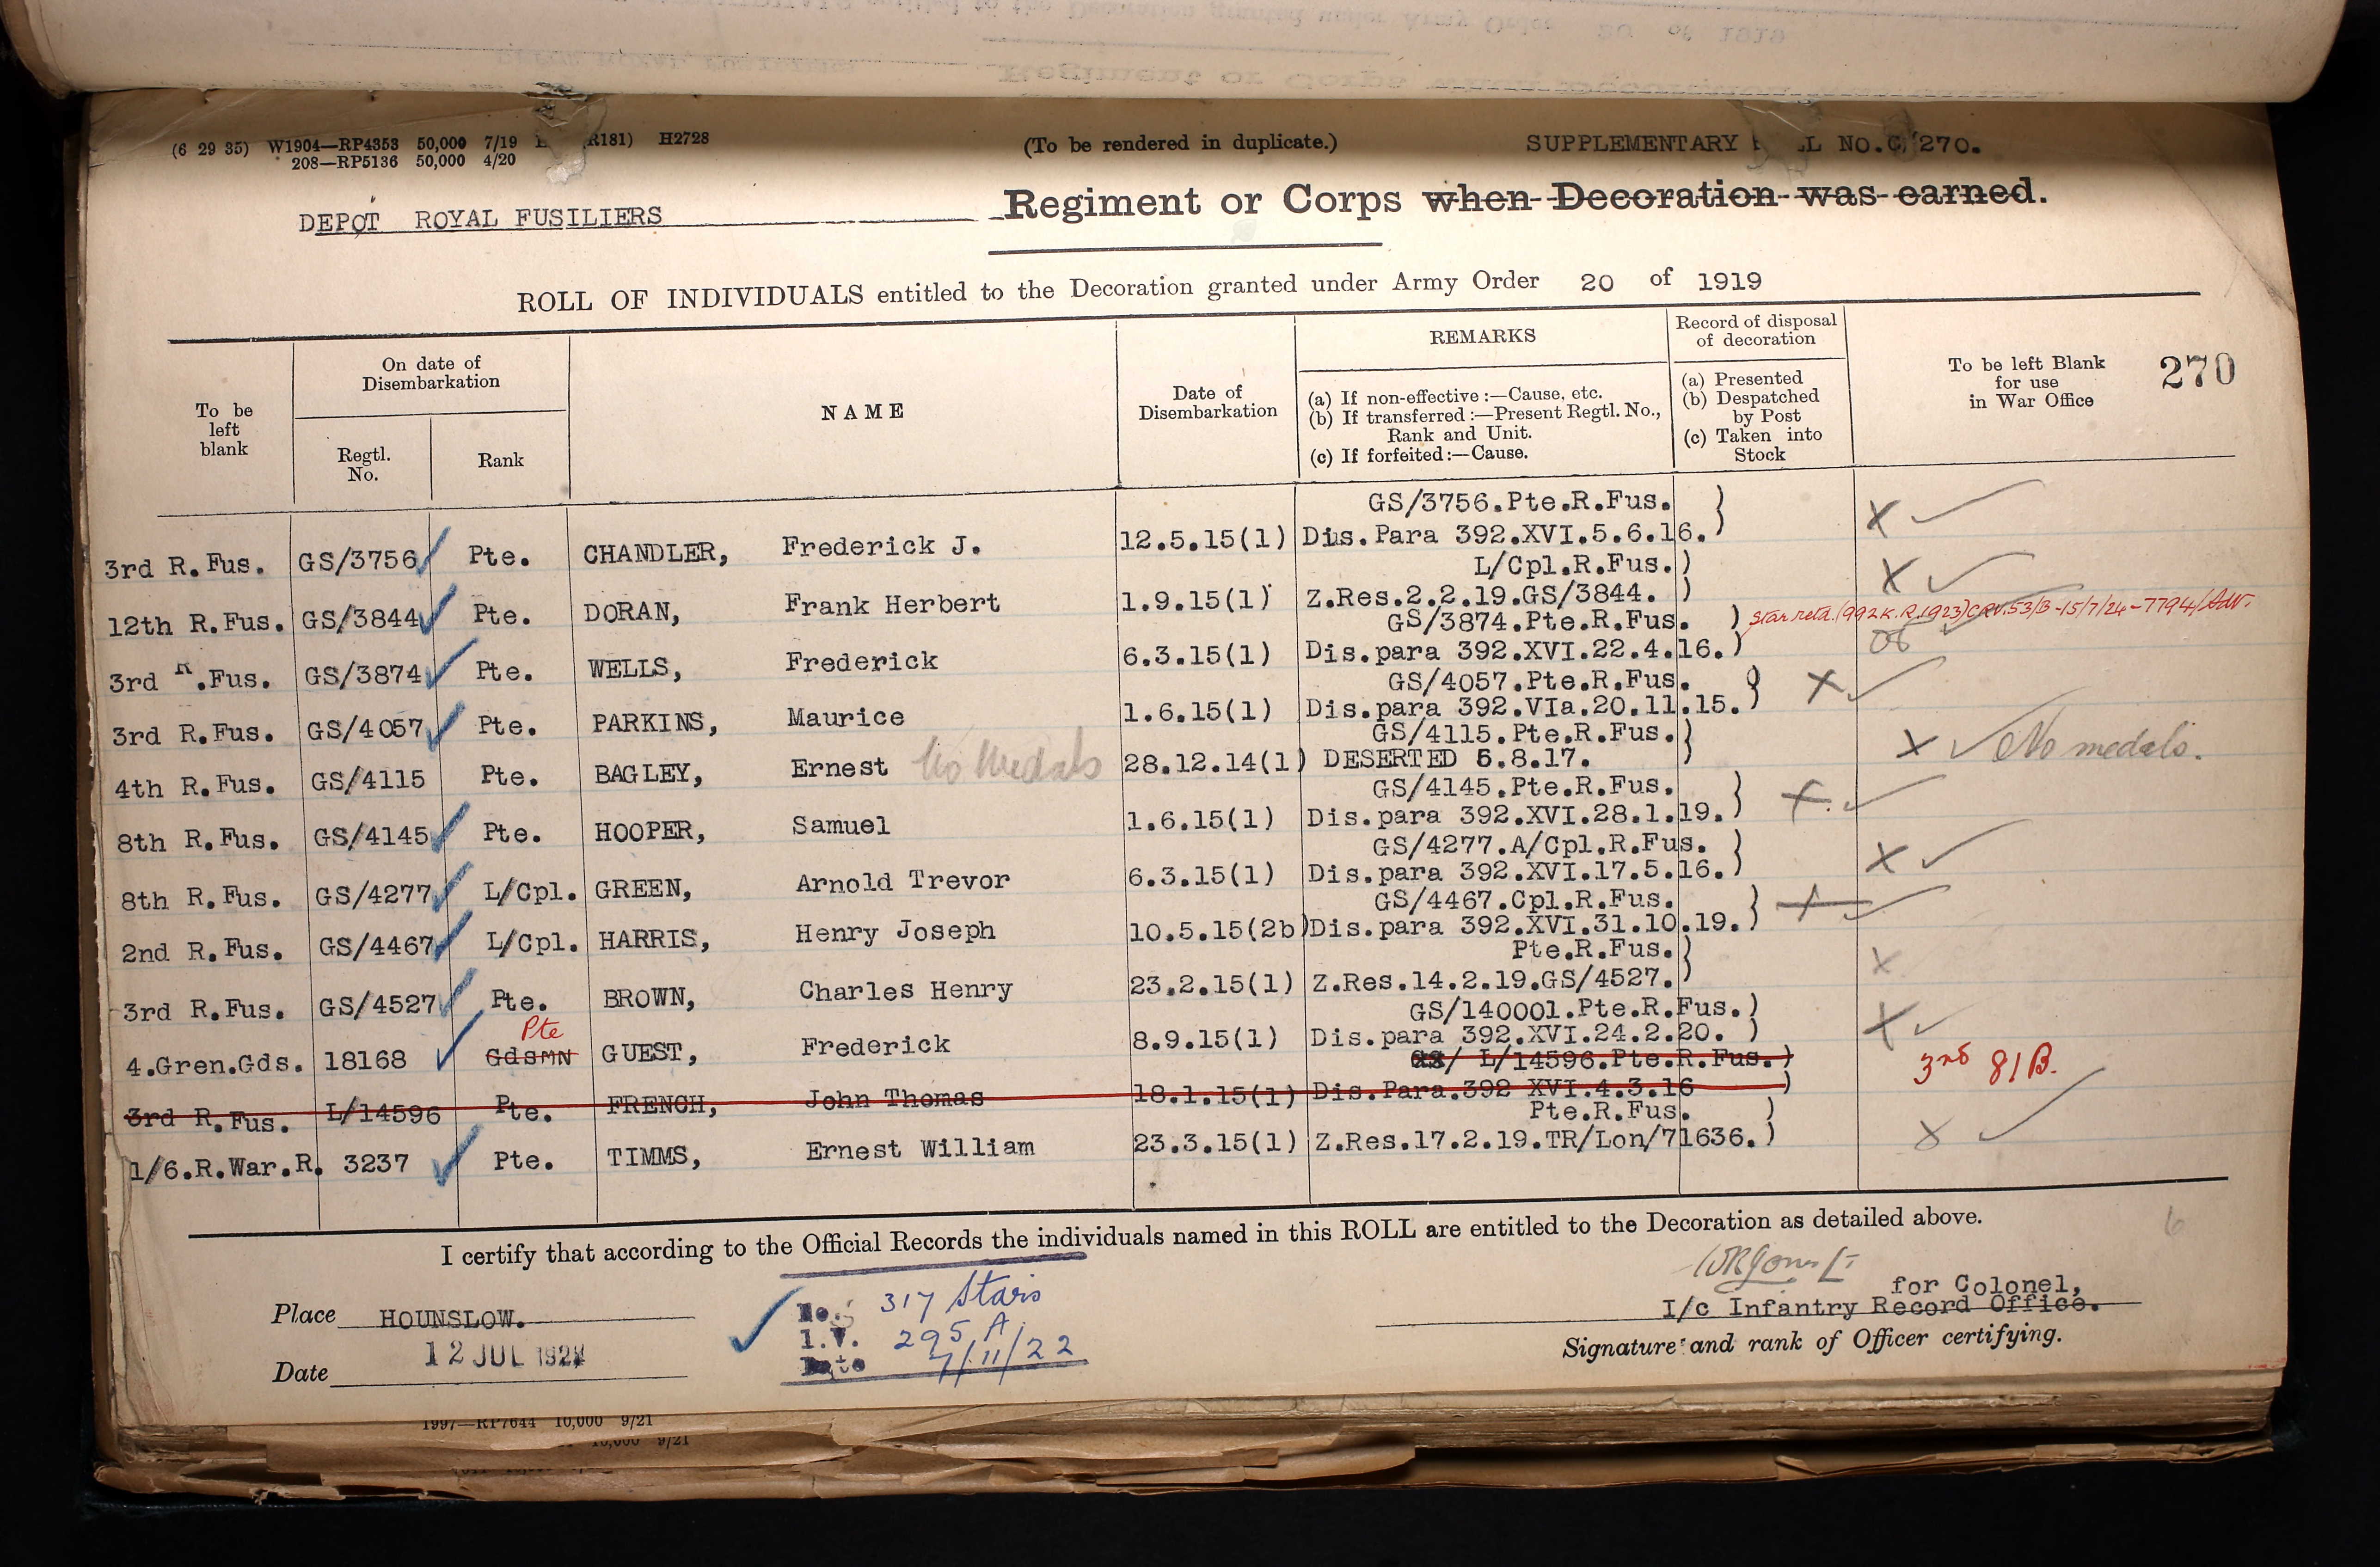 (6 29 35) W1904—RP4353 50,000 7/19 R181) H2728
208—RP5136 50,000 4/20
(To be rendered in duplicate.)
SUPPLEMENTARY NO.C/270.
DEPOT ROYAL FUSILIERS Regiment or Corps when Decoration was earned.
ROLL OF INDIVIDUALS entitled to the Decoration granted under Army Order 20 of 1919
To be left blank
On date of Disembarkation
Regtl. No.
Rank
NAME
Date of Disembarkation
REMARKS
(a) If non-effective :—Cause, etc.
(b) If transferred :—Present Regtl. No., Rank and Unit.
(c) If forfeited :—Cause.
Record of disposal of decoration
(a) Presented
(b) Despatched by Post
(c) Taken into Stock
To be left Blank for use in War Office
270
GS/3756.Pte.R.Fus. )
3rd R.Fus. GS/3756 Pte. CHANDLER, Frederick J. 12.5.15(1) Dis.Para 392.XVI.5.6.16. ) X
L/Cpl.R.Fus.)
12th R.Fus. GS/3844 Pte. DORAN, Frank Herbert 1.9.15(1) Z.Res.2.2.19.GS/3844. ) X
GS/3874.Pte.R.Fus. ) Star retd. (992 K.R.1923) CRV.53/B-15/7/24-7794/Adv.
3rd R.Fus. GS/3874 Pte. WELLS, Frederick 6.3.15(1) Dis.para 392.XVI.22.4.16.)
GS/4057.Pte.R.Fus. )
3rd R.Fus. GS/4057 Pte. PARKINS, Maurice 1.6.15(1) Dis.para 392.VIa.20.11.15.) X
GS/4115.Pte.R.Fus.)
4th R.Fus. GS/4115 Pte. BAGLEY, Ernest No Medals 28.12.14(1) DESERTED 6.8.17. ) X No medals.
GS/4145.Pte.R.Fus. )
8th R.Fus. GS/4145 Pte. HOOPER, Samuel 1.6.15(1) Dis.para 392.XVI.28.1.19.) X
GS/4277.A/Cpl.R.Fus. )
8th R.Fus. GS/4277 L/Cpl. GREEN, Arnold Trevor 6.3.15(1) Dis.para 392.XVI.17.5.16.) X
GS/4467.Cpl.R.Fus. )
2nd R.Fus. GS/4467 L/Cpl. HARRIS, Henry Joseph 10.5.15(2b) Dis.para 392.XVI.31.10.19.) X
Pte.R.Fus.)
3rd R.Fus. GS/4527 Pte. BROWN, Charles Henry 23.2.15(1) Z.Res.14.2.19.GS/4527.) X
Pte
GS/140001.Pte.R.Fus.)
4.Gren.Gds. 18168 GdsMN GUEST, Frederick 8.9.15(1) Dis.para 392.XVI.24.2.20. ) X
GS/ L/14596.Pte.R.Fus.)
3rd R.Fus. L/14596 Pte. FRENCH, John Thomas 18.1.15(1) Dis.Para.392 XVI.4.3.16 ) 3rd 81B.
Pte.R.Fus. )
1/6.R.War.R. 3237 Pte. TIMMS, Ernest William 23.3.15(1) Z.Res.17.2.19.TR/Lon/71636.) X
I certify that according to the Official Records the individuals named in this ROLL are entitled to the Decoration as detailed above.
6
for Colonel,
I/c Infantry Record Office.
Signature and rank of Officer certifying.
Place HOUNSLOW.
Date 12 JUL 192
No. 317 Stars
I.V. 295 A.
Date 7/11/22
1997—RP7644 10,000 9/21
10,000 9/21